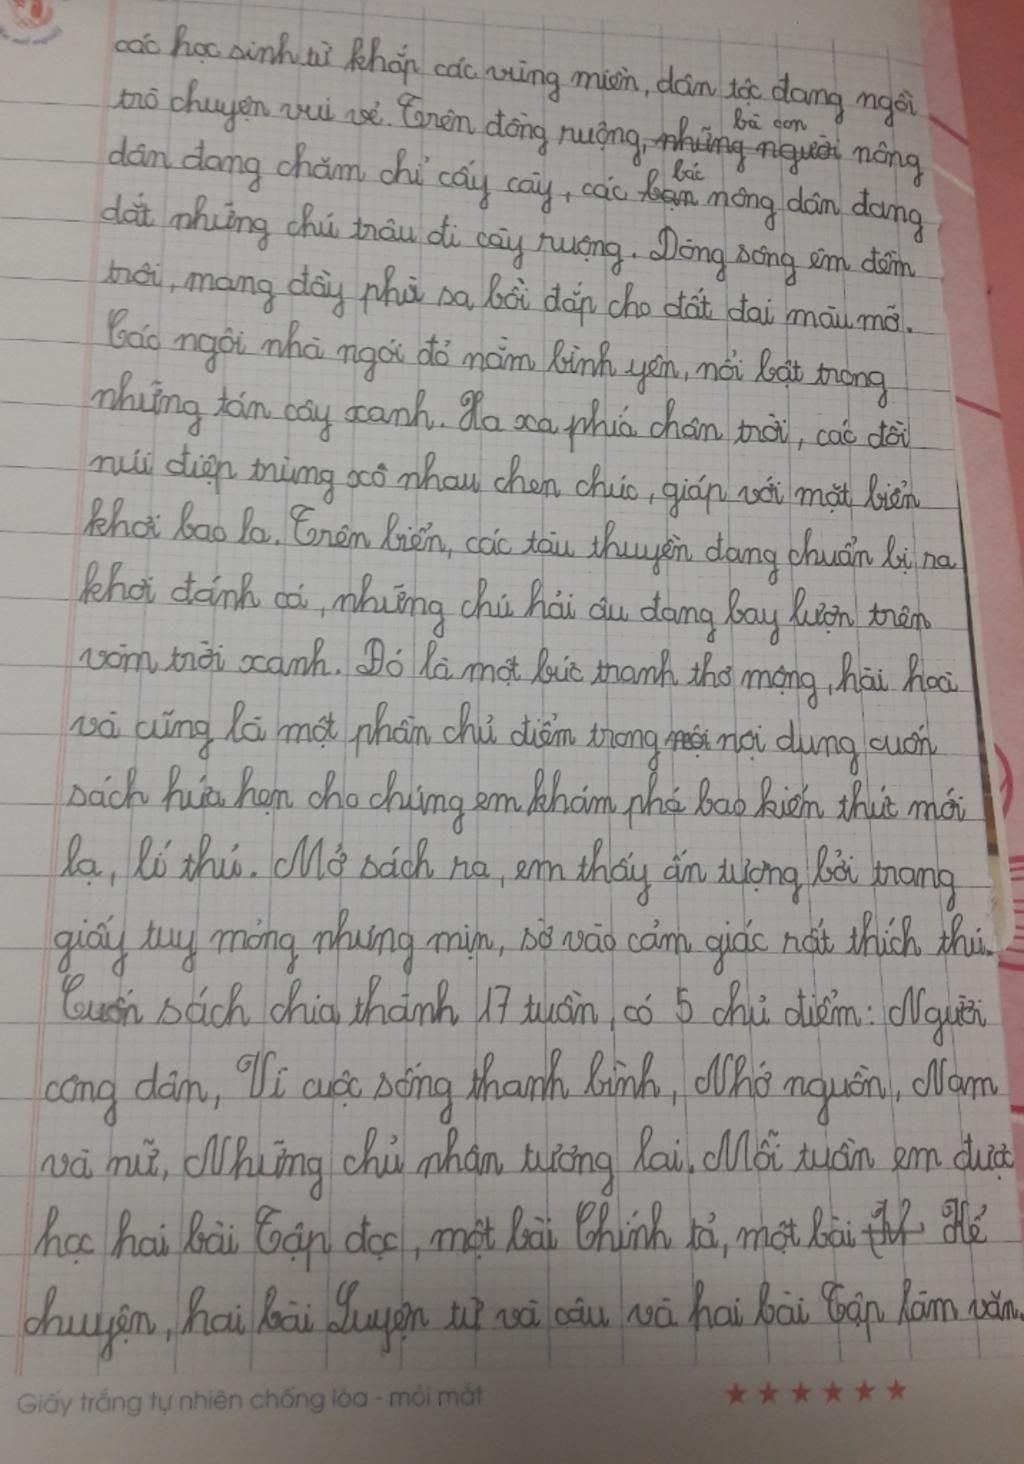 các học sinh từ khắp các vùng miền, dân tộc đang ngồi
trò chuyện vui vẻ. Trên đồng ruộng, những người bà con nông
dân đang chăm chỉ cấy cày, các bạn bác nông dân đang
dắt những chú trâu đi cày ruộng. Dòng sông êm đềm
trôi, mang đầy phù sa bồi đắp cho đất đai màu mỡ.
Các ngôi nhà ngói đỏ nằm bình yên, nổi bật trong
những tán cây xanh. Xa xa phía chân trời, các đồi
núi điệp trùng xô nhau chen chúc, giáp với mặt biển
khơi bao la. Trên biển, các tàu thuyền đang chuẩn bị ra
khơi đánh cá, những chú hải âu đang bay lượn trên
vòm trời xanh. Đó là một bức tranh thơ mộng, hài hoà
và cũng là một phần chủ điểm trong nội dung cuốn
sách hứa hẹn cho chúng em khám phá bao kiến thức mới
lạ, lí thú. Mở sách ra, em thấy ấn tượng bởi trang
giấy tuy mỏng nhưng mịn, sờ vào cảm giác rất thích thú.
Cuốn sách chia thành 17 tuần, có 5 chủ điểm: Người
công dân, Vì cuộc sống thanh bình, Nhớ nguồn, Nam
và nữ, Những chủ nhân tương lai. Mỗi tuần em được
học hai bài Tập đọc, một bài Chính tả, một bài Kể
chuyện, hai bài Luyện từ và câu và hai bài Tập làm văn.
Giấy trắng tự nhiên chống lóa - mỏi mắt